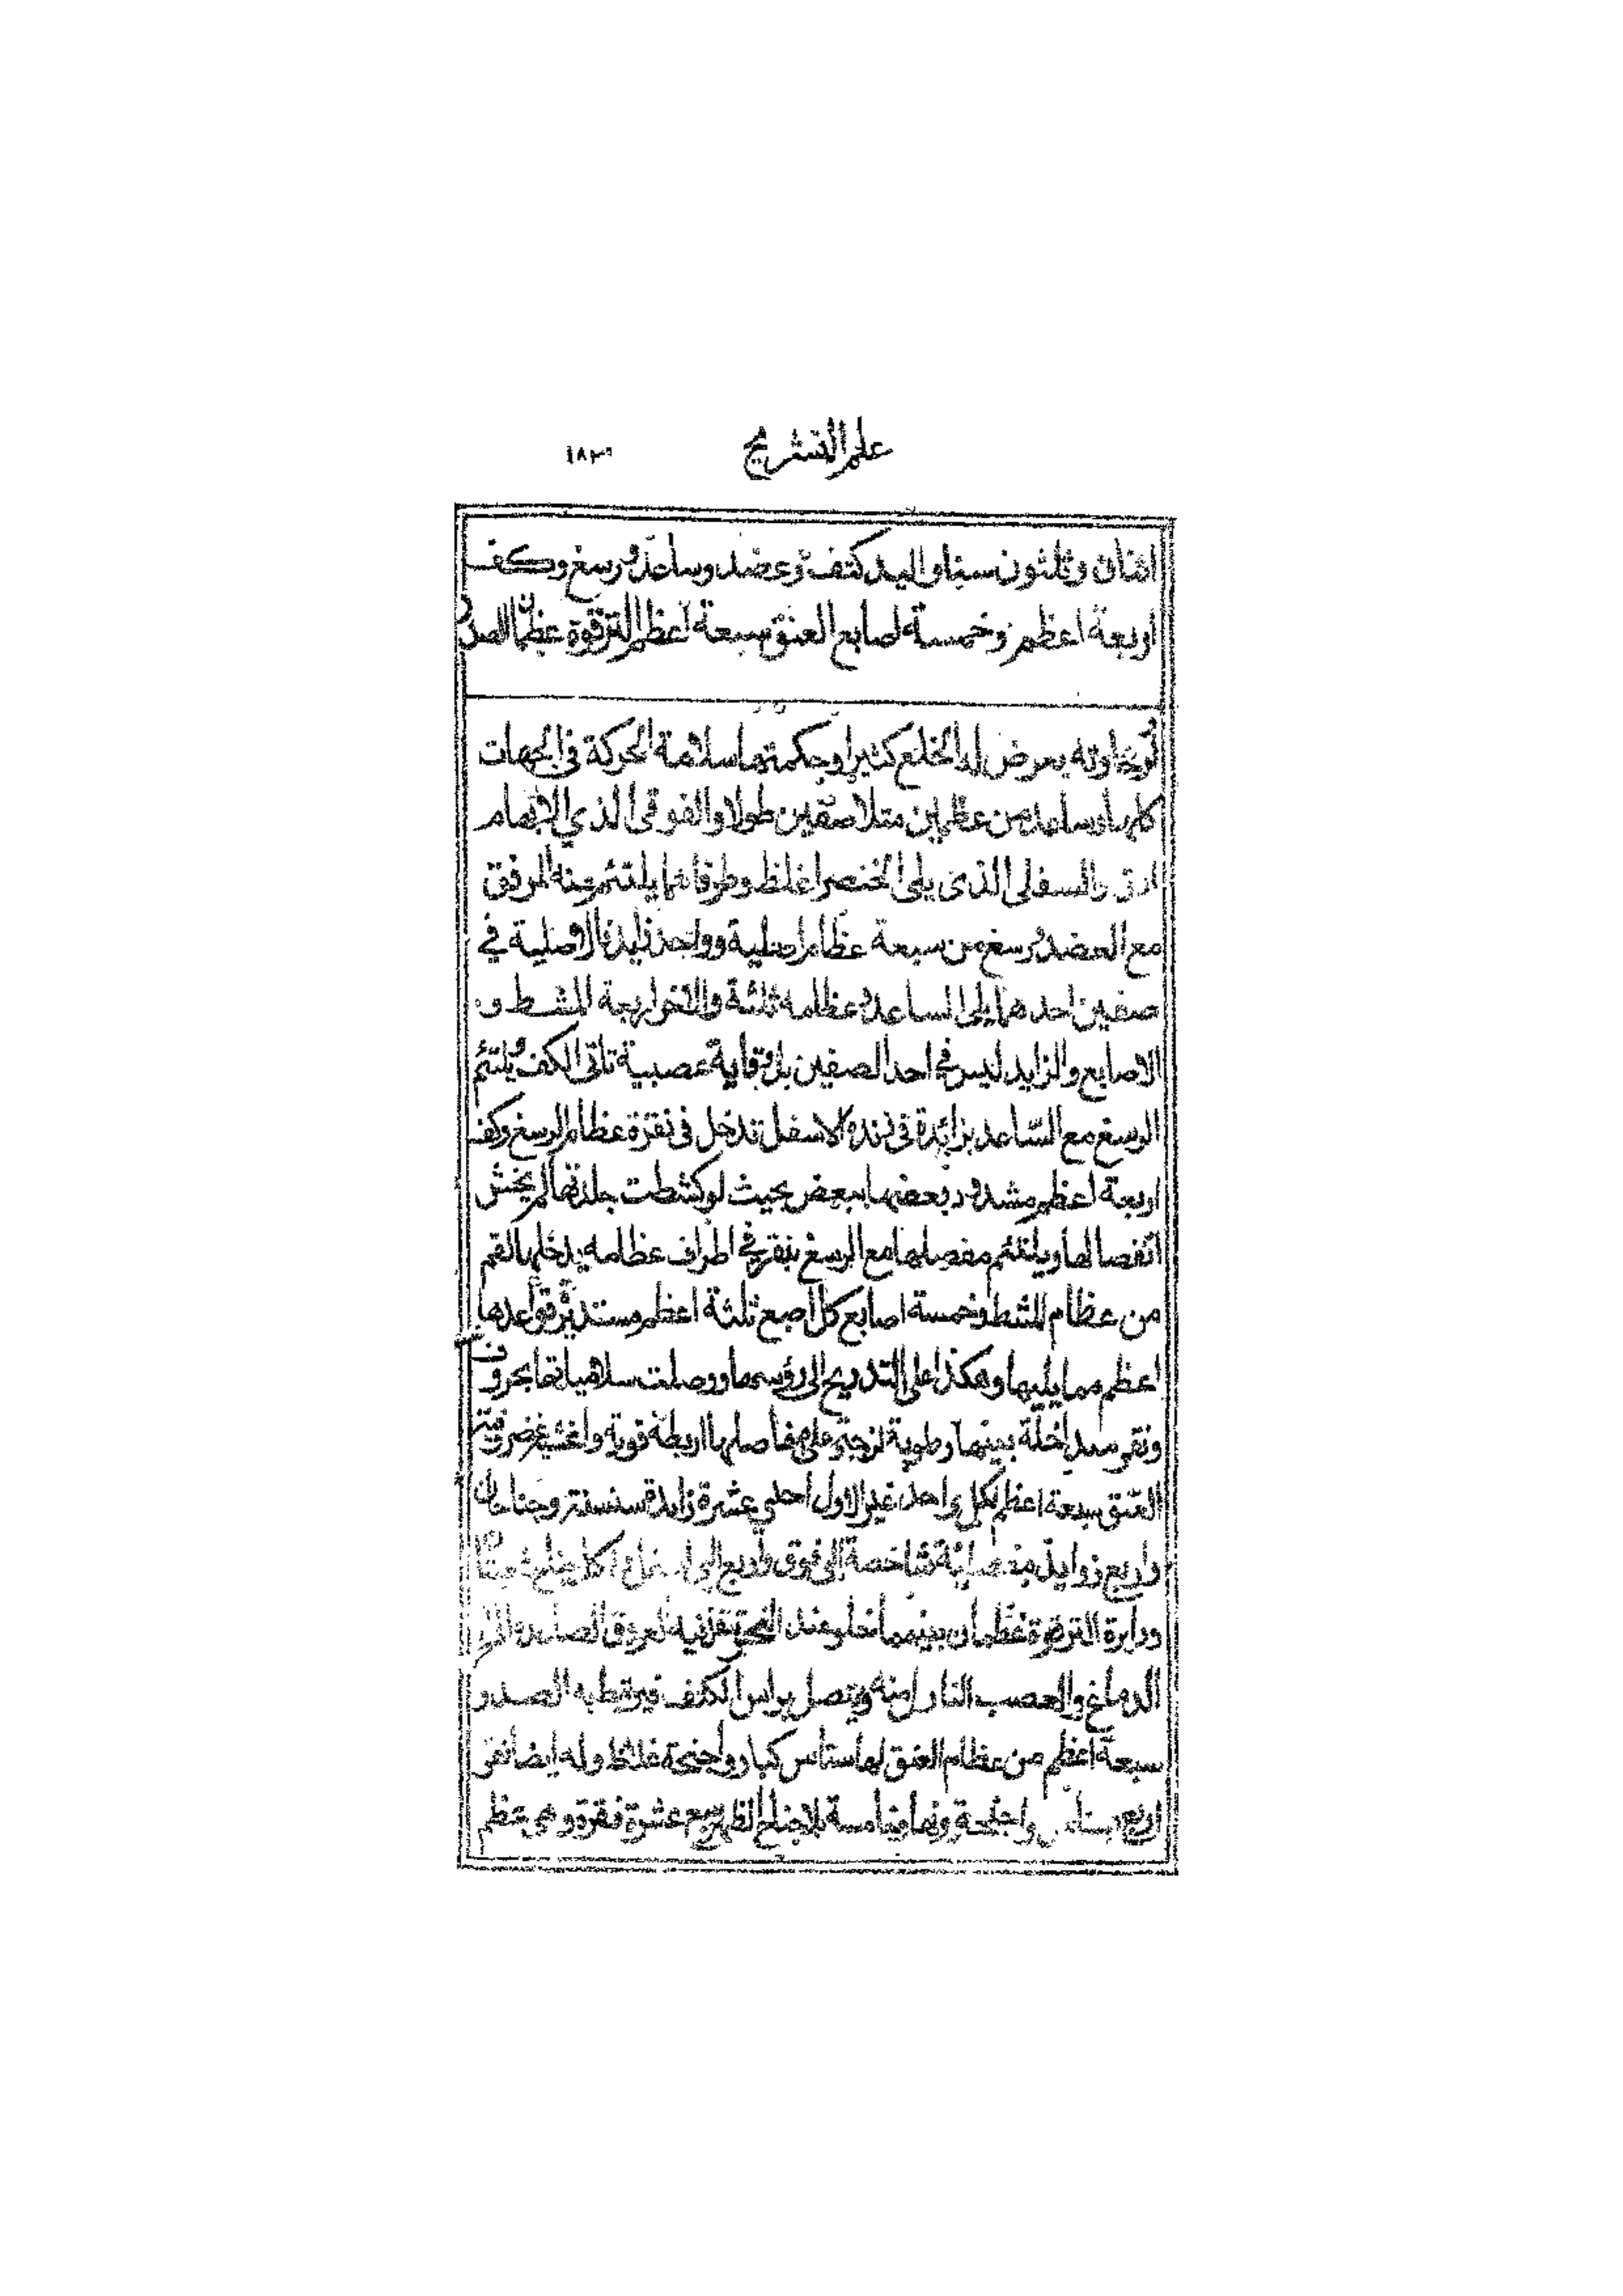 علم التشريح ١٨٣
اثنان وثلثون سنا واليد كتف وعضد وساعد ورسغ وكف
اربعة اعظم وخمسة اصابع العنق سبعة اعظم الترقوة عظمان الصدر
ولرخاوته يعرض له الخلع كثيرا وحكمتها سلامة الحركة في الجهات
كلها وساعد من عظمين متلاصقين طولا والفوقى الذي الابهام
ادق والسفلى الذى يلى الخنصر اغلظ وطرفاهما يلتئم منه المرفق
مع العضد ورسغ من سبعة عظام اصلية وواحد زايد فالاصلية في
صفين احدهما يلى الساعد وعظامه ثلثة والاخر اربعة للمشط و
الاصابع والزايد ليس في احد الصفين بل وقاية عصبية تاتى الكف ويلتئم
الرسغ مع الساعد بزائدة فى زنده الاسفل تدخل فى نقرة عظام الرسغ وكف
اربعة اعظم مشدود بعضها ببعض بحيث لو كشطت جلدتها لم يخش
انفصالها ويلتئم مفصلها مع الرسغ بنقر في اطراف عظامه يدخلها لقم
من عظام المشط وخمسة اصابع كل اصبع ثلثة اعظم مستديرة قواعدها
اعظم مما يليها وهكذا على التدريج الى رؤسها ووصلت سلامياتها بحروف
ونقر متداخلة بينها رطوبة لزجة على مفاصلها اربطة قوية واغشية غضروفية
العنق سبعة اعظم لكل واحد غير الاول احدى عشرة زايدة سنسنة وجناحان
واربع زوايد مفصلية شاخصة الى فوق واربع الى اسفل
ودايرة الترقوة عظمان بينهما خلو عند النحر تنفذ فيه العروق الصاعدة الى
الدماغ والعصب النازل منه ويتصل براس الكتف فيرتبط به الصدر
سبعة اعظم من عظام العنق لها سناسن كبار واجنحة غلاظ وله ايضا فقر
اربع سناسن واجنحة وخامسة بلا جناح الظهر سبع عشرة فقرة وهى عظم